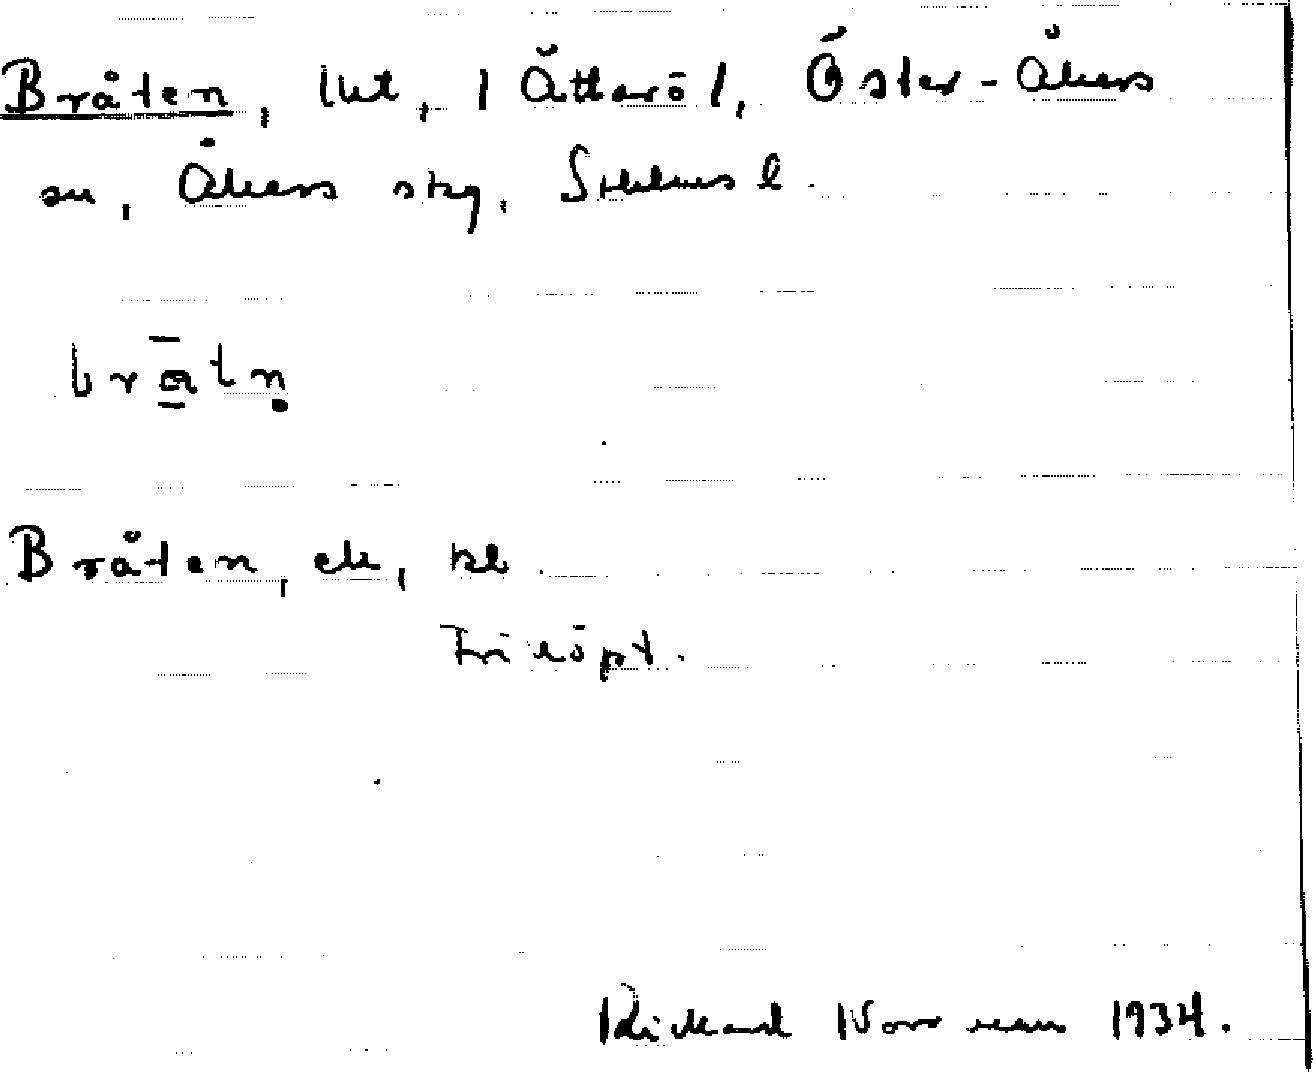 Bråten, lht, / Ättarö /, Öster-Åkers
sn, Åkers skg, Sthlms l.
brātn̥
Bråten, eh, kl
Friköpt.
Rickard Norrman 1934.